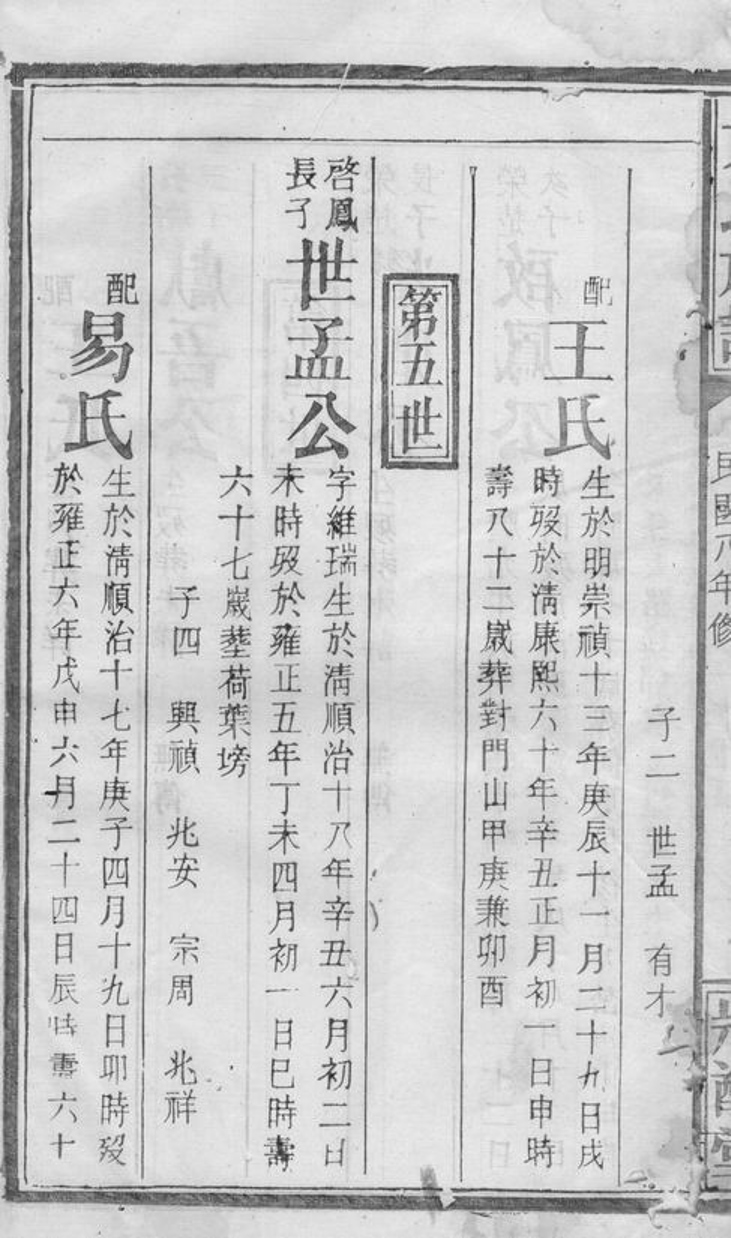 民國八年修
子二 世孟 有才
配王氏
生於明崇禎十三年庚辰十一月二十九日戌
時歿於清康熙六十年辛丑正月初一日申時
壽八十二歲葬對門山甲庚兼卯酉
第五世
啓鳳
長子
世孟公
字維瑞生於清順治十八年辛丑六月初二日
未時歿於雍正五年丁未四月初一日巳時壽
六十七歲塟荷葉塝
子四 興禎 兆安 宗周 兆祥
配易氏
生於清順治十七年庚子四月十九日卯時歿
於雍正六年戊申六月二十四日辰時壽六十